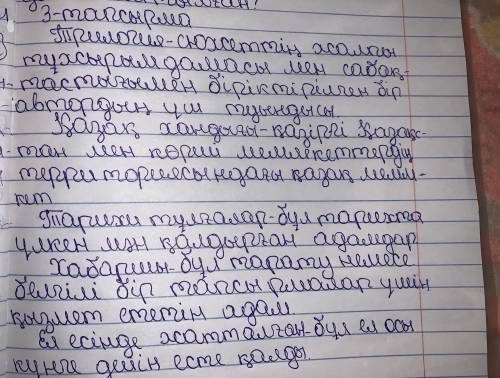 3-тапсырма
Трилогия-сюжеттің жалпы
тұжырымдамасы мен сабақ-
тастығымен біріктірілген бір
автордың үш туындысы.
Қазақ хандығы-қазіргі Қазақ-
тан мен көрші мемлекеттердің
территориясындағы қазақ мемл-
кет
Тарихи тұлғалар-бұл тарихта
үлкен із қалдырған адамдар
Хабаршы-бұл тарату немесе
белгілі бір тапсырмалар үшін
қызмет ететін адам.
Ел есінде жатталған-бұл ел осы
күнге дейін есте қалды.